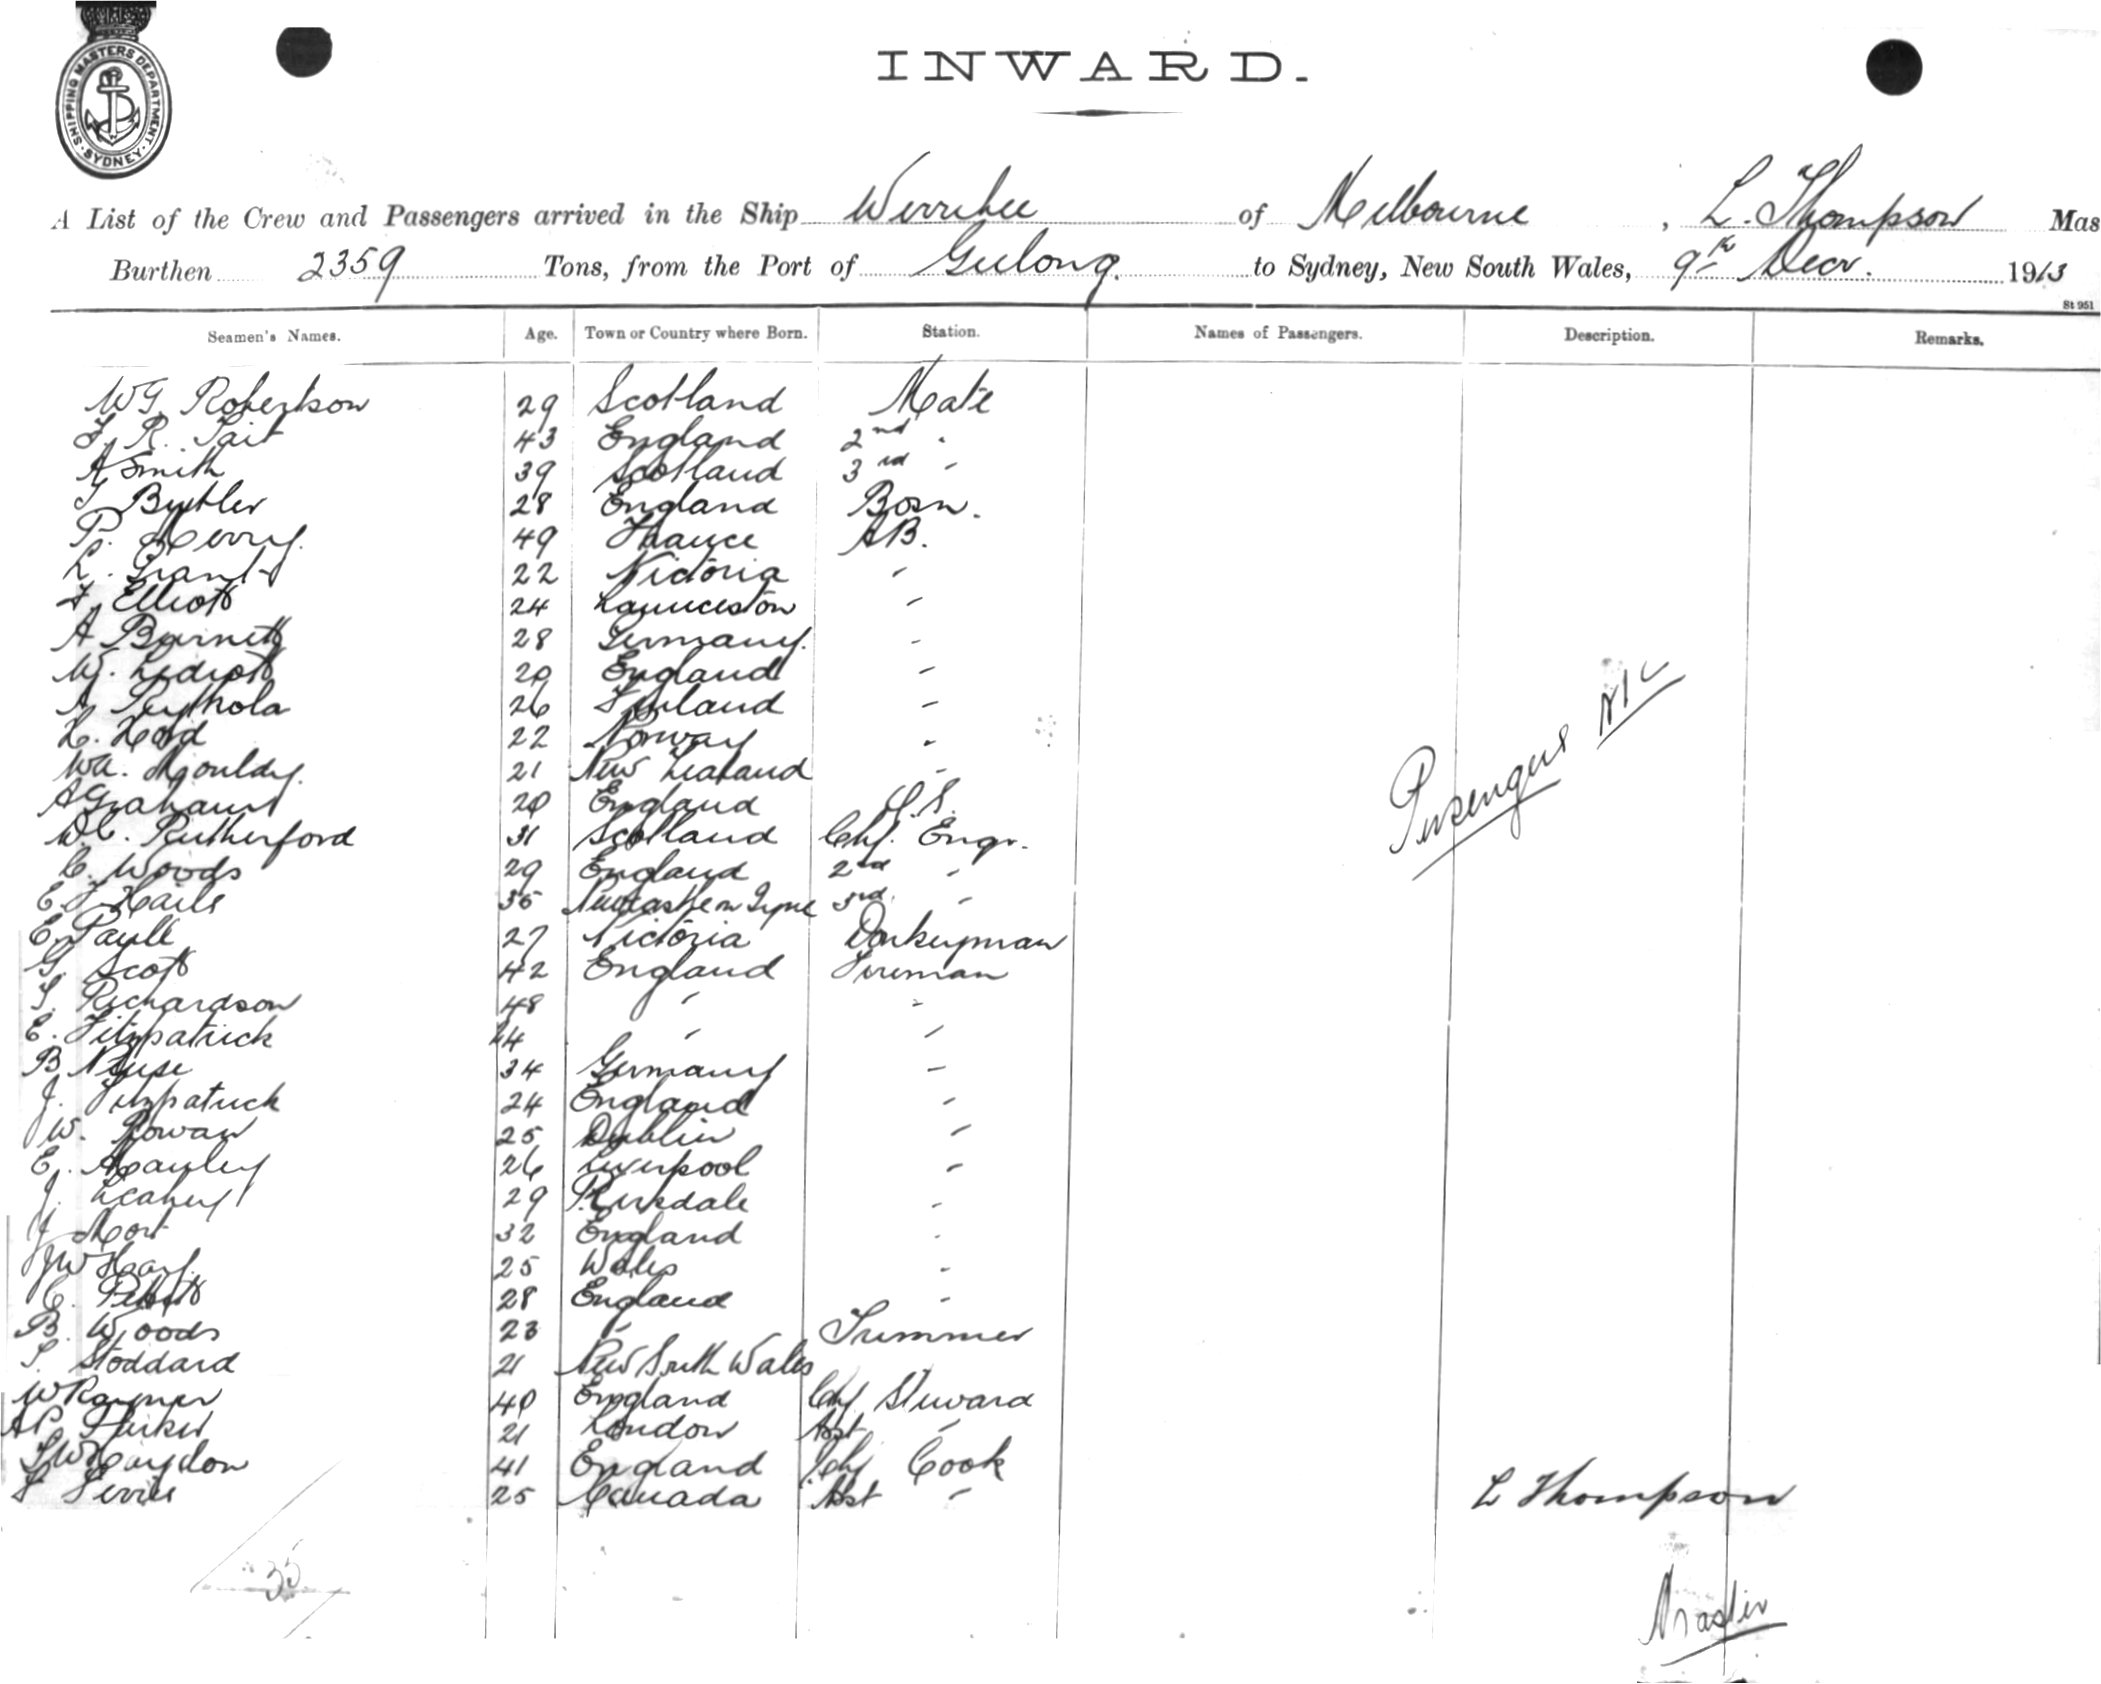 SHIPPING MASTERS DEPARTMENT. SYDNEY.
INWARD.
A List of the Crew and Passengers arrived in the Ship Werribee of Melbourne, L. Thompson Mas
Burthen 2359 Tons, from the Port of Geelong. to Sydney, New South Wales, 9th Decr. 1913
St 951
Seamen's Names. Age. Town or Country where Born. Station. Names of Passengers. Description. Remarks.
W G Robertson 29 Scotland Mate
F. R. Tait 43 England 2nd "
A Smith 39 Scotland 3rd "
Butler 28 England Bosn.
P. Merry. 49 France AB.
L. Grant 22 Victoria "
F. Elliott 24 Launceston "
A Barnett 28 Germany. "
W. 20 England "
A 26 Finland "
L. 22 Norway "
Wa. Mouldy. 21 New Zealand "
A Graham 20 England O.S.
D.C. Rutherford 31 Scotland Chf. Engr.
C. Woods 29 England 2nd "
E. F. Haile 35 Newcastle on Tyne 3rd. "
E. Paull 27 Victoria Donkeyman
G. Scott 42 England Fireman
S. Richardson 48 " "
E. Fitzpatrick 24 " "
B. 34 Germany "
J. Fitzpatrick 24 England "
W. Rowan 25 Dublin "
E. Manley 26 Liverpool "
J. Leahey 29 Kirkdale "
J Mort 32 England "
J W Hay. 25 Wales "
C. 28 England "
B. Woods 23 " Trimmer
S. Stoddard 21 New South Wales
W Rayner 40 England Chf Steward
A P. Parker 21 London Asst "
S W Haydon 41 England Chf Cook
F Ferris 25 Canada Asst "
Passengers NIL
L Thompson
Master
35